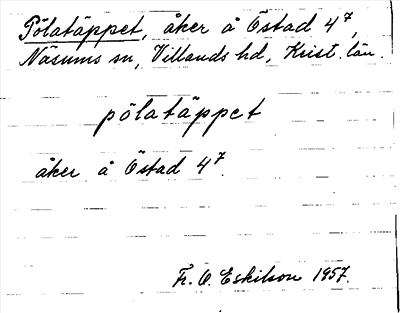 Pölatäppet, åker å Östad 4⁷,
Näsums sn, Villands hd, Krist. län.
pölatäppet
åker å Östad 4⁷.
Fr. O. Eskilson 1957.